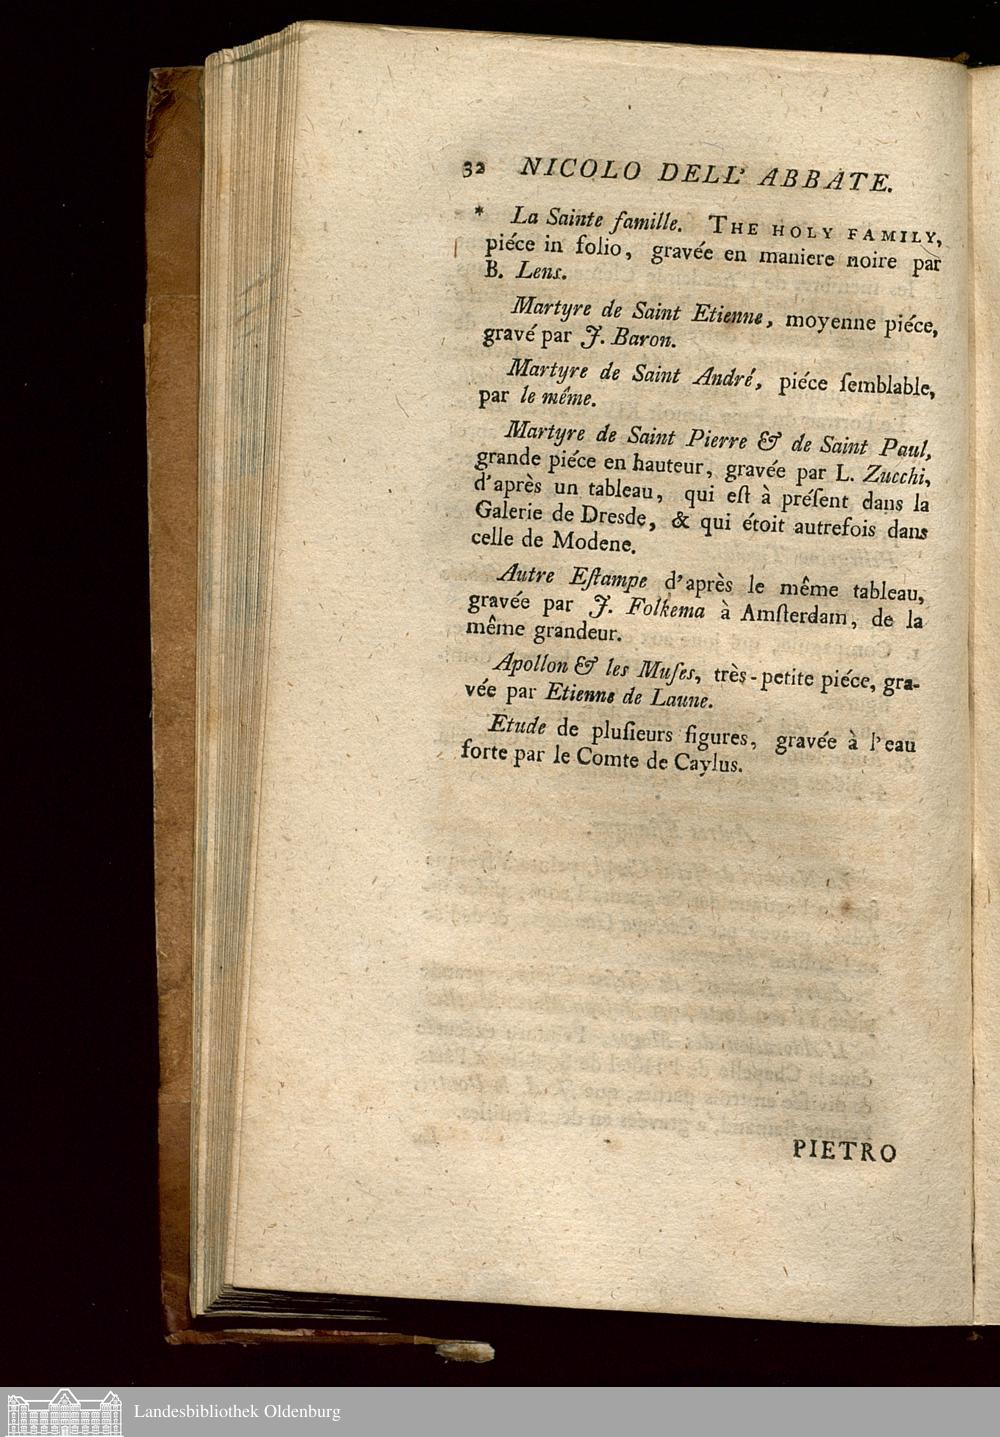 32 NICOLO DELL' ABBATE.
* La Sainte famille. THE HOLY FAMILY,
piéce in folio, gravée en maniere noire par
B. Lens.
Martyre de Saint Etienne, moyenne piéce,
gravé par J. Baron.
Martyre de Saint André, piéce ſemblable,
par le même.
Martyre de Saint Pierre & de Saint Paul,
grande piéce en hauteur, gravée par L. Zucchi,
d'après un tableau, qui eſt à préſent dans la
Galerie de Dresde, & qui étoit autrefois dans
celle de Modene.
Autre Eſtampe d'après le même tableau,
gravée par J. Folkema à Amſterdam, de la
même grandeur.
Apollon & les Muſes, très-petite piéce, gra-
vée par Etienne de Laune.
Etude de pluſieurs figures, gravée à l'eau
forte par le Comte de Caylus.
PIETRO
Landesbibliothek Oldenburg